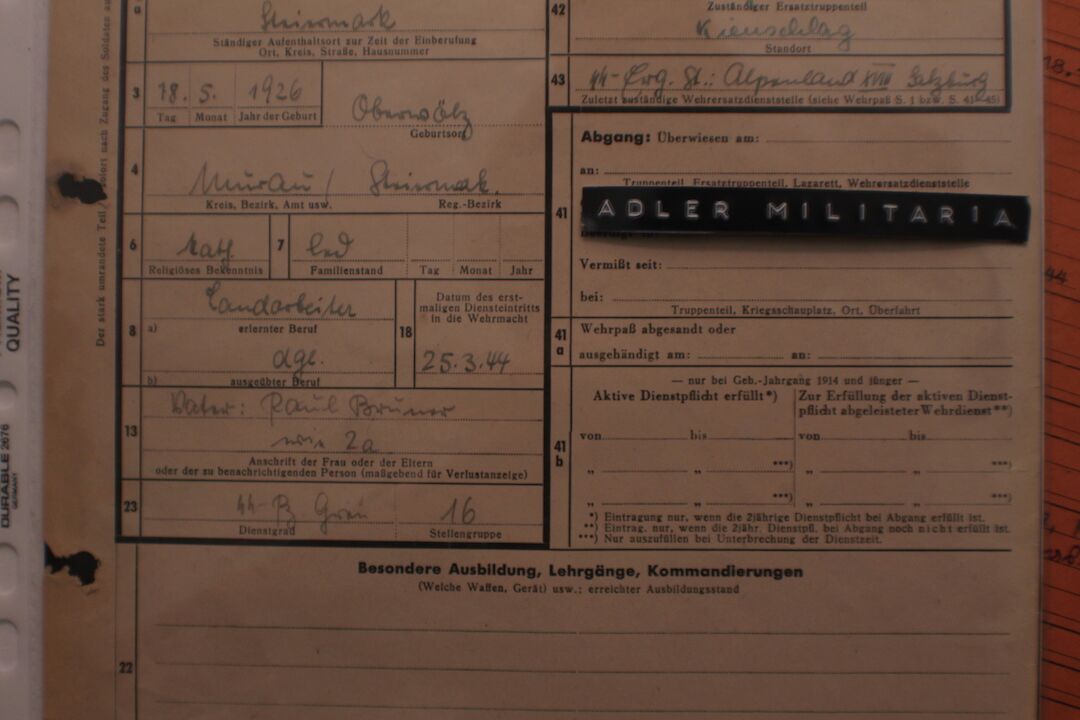 a
Steiermark
Ständiger Aufenthaltsort zur Zeit der Einberufung
Ort, Kreis, Straße, Hausnummer
3
18. 5. 1926
Tag Monat Jahr der Geburt
Oberwölz
Geburtsort
4
Murau / Steiermark.
Kreis, Bezirk, Amt usw. Reg.-Bezirk
6
kath.
Religiöses Bekenntnis
7
led
Familienstand Tag Monat Jahr
8
Landarbeiter
a) erlernter Beruf
dgl.
b) ausgeübter Beruf
18
Datum des erst-
maligen Diensteintritts
in die Wehrmacht
25.3.44
13
Vater: Paul Bruner
wie 2a
Anschrift der Frau oder der Eltern
oder der zu benachrichtigenden Person (maßgebend für Verlustanzeige)
23
16
Dienstgrad Stellengruppe
42
Zuständiger Ersatztruppenteil
Kienschlag
Standort
43
Erg. St.: Alpenland XVIII Salzburg
Zuletzt zuständige Wehrersatzdienststelle (siehe Wehrpaß S. 1 bzw. S. 41-45)
Abgang: Überwiesen am:
an:
Truppenteil, Ersatztruppenteil, Lazarett, Wehrersatzdienststelle
41
ADLER MILITARIA
Vermißt seit:
bei:
Truppenteil, Kriegsschauplatz, Ort, Überfahrt
41
a
Wehrpaß abgesandt oder
ausgehändigt am: an:
— nur bei Geb.-Jahrgang 1914 und jünger —
Aktive Dienstpflicht erfüllt*)
Zur Erfüllung der aktiven Dienst-
pflicht abgeleisteter Wehrdienst**)
41
b
von bis von bis
„ „ ***) „ „ ***)
„ „ ***) „ „ ***)
*) Eintragung nur, wenn die 2jährige Dienstpflicht bei Abgang erfüllt ist.
**) Eintrag. nur, wenn die 2jähr. Dienstpfl. bei Abgang noch nicht erfüllt ist.
***) Nur auszufüllen bei Unterbrechung der Dienstzeit.
Besondere Ausbildung, Lehrgänge, Kommandierungen
(Welche Waffen, Gerät) usw.: erreichter Ausbildungsstand
22
Der stark umrandete Teil sofort nach Zugang des Soldaten
QUALITY
DURABLE 2676
GERMANY
18.
44